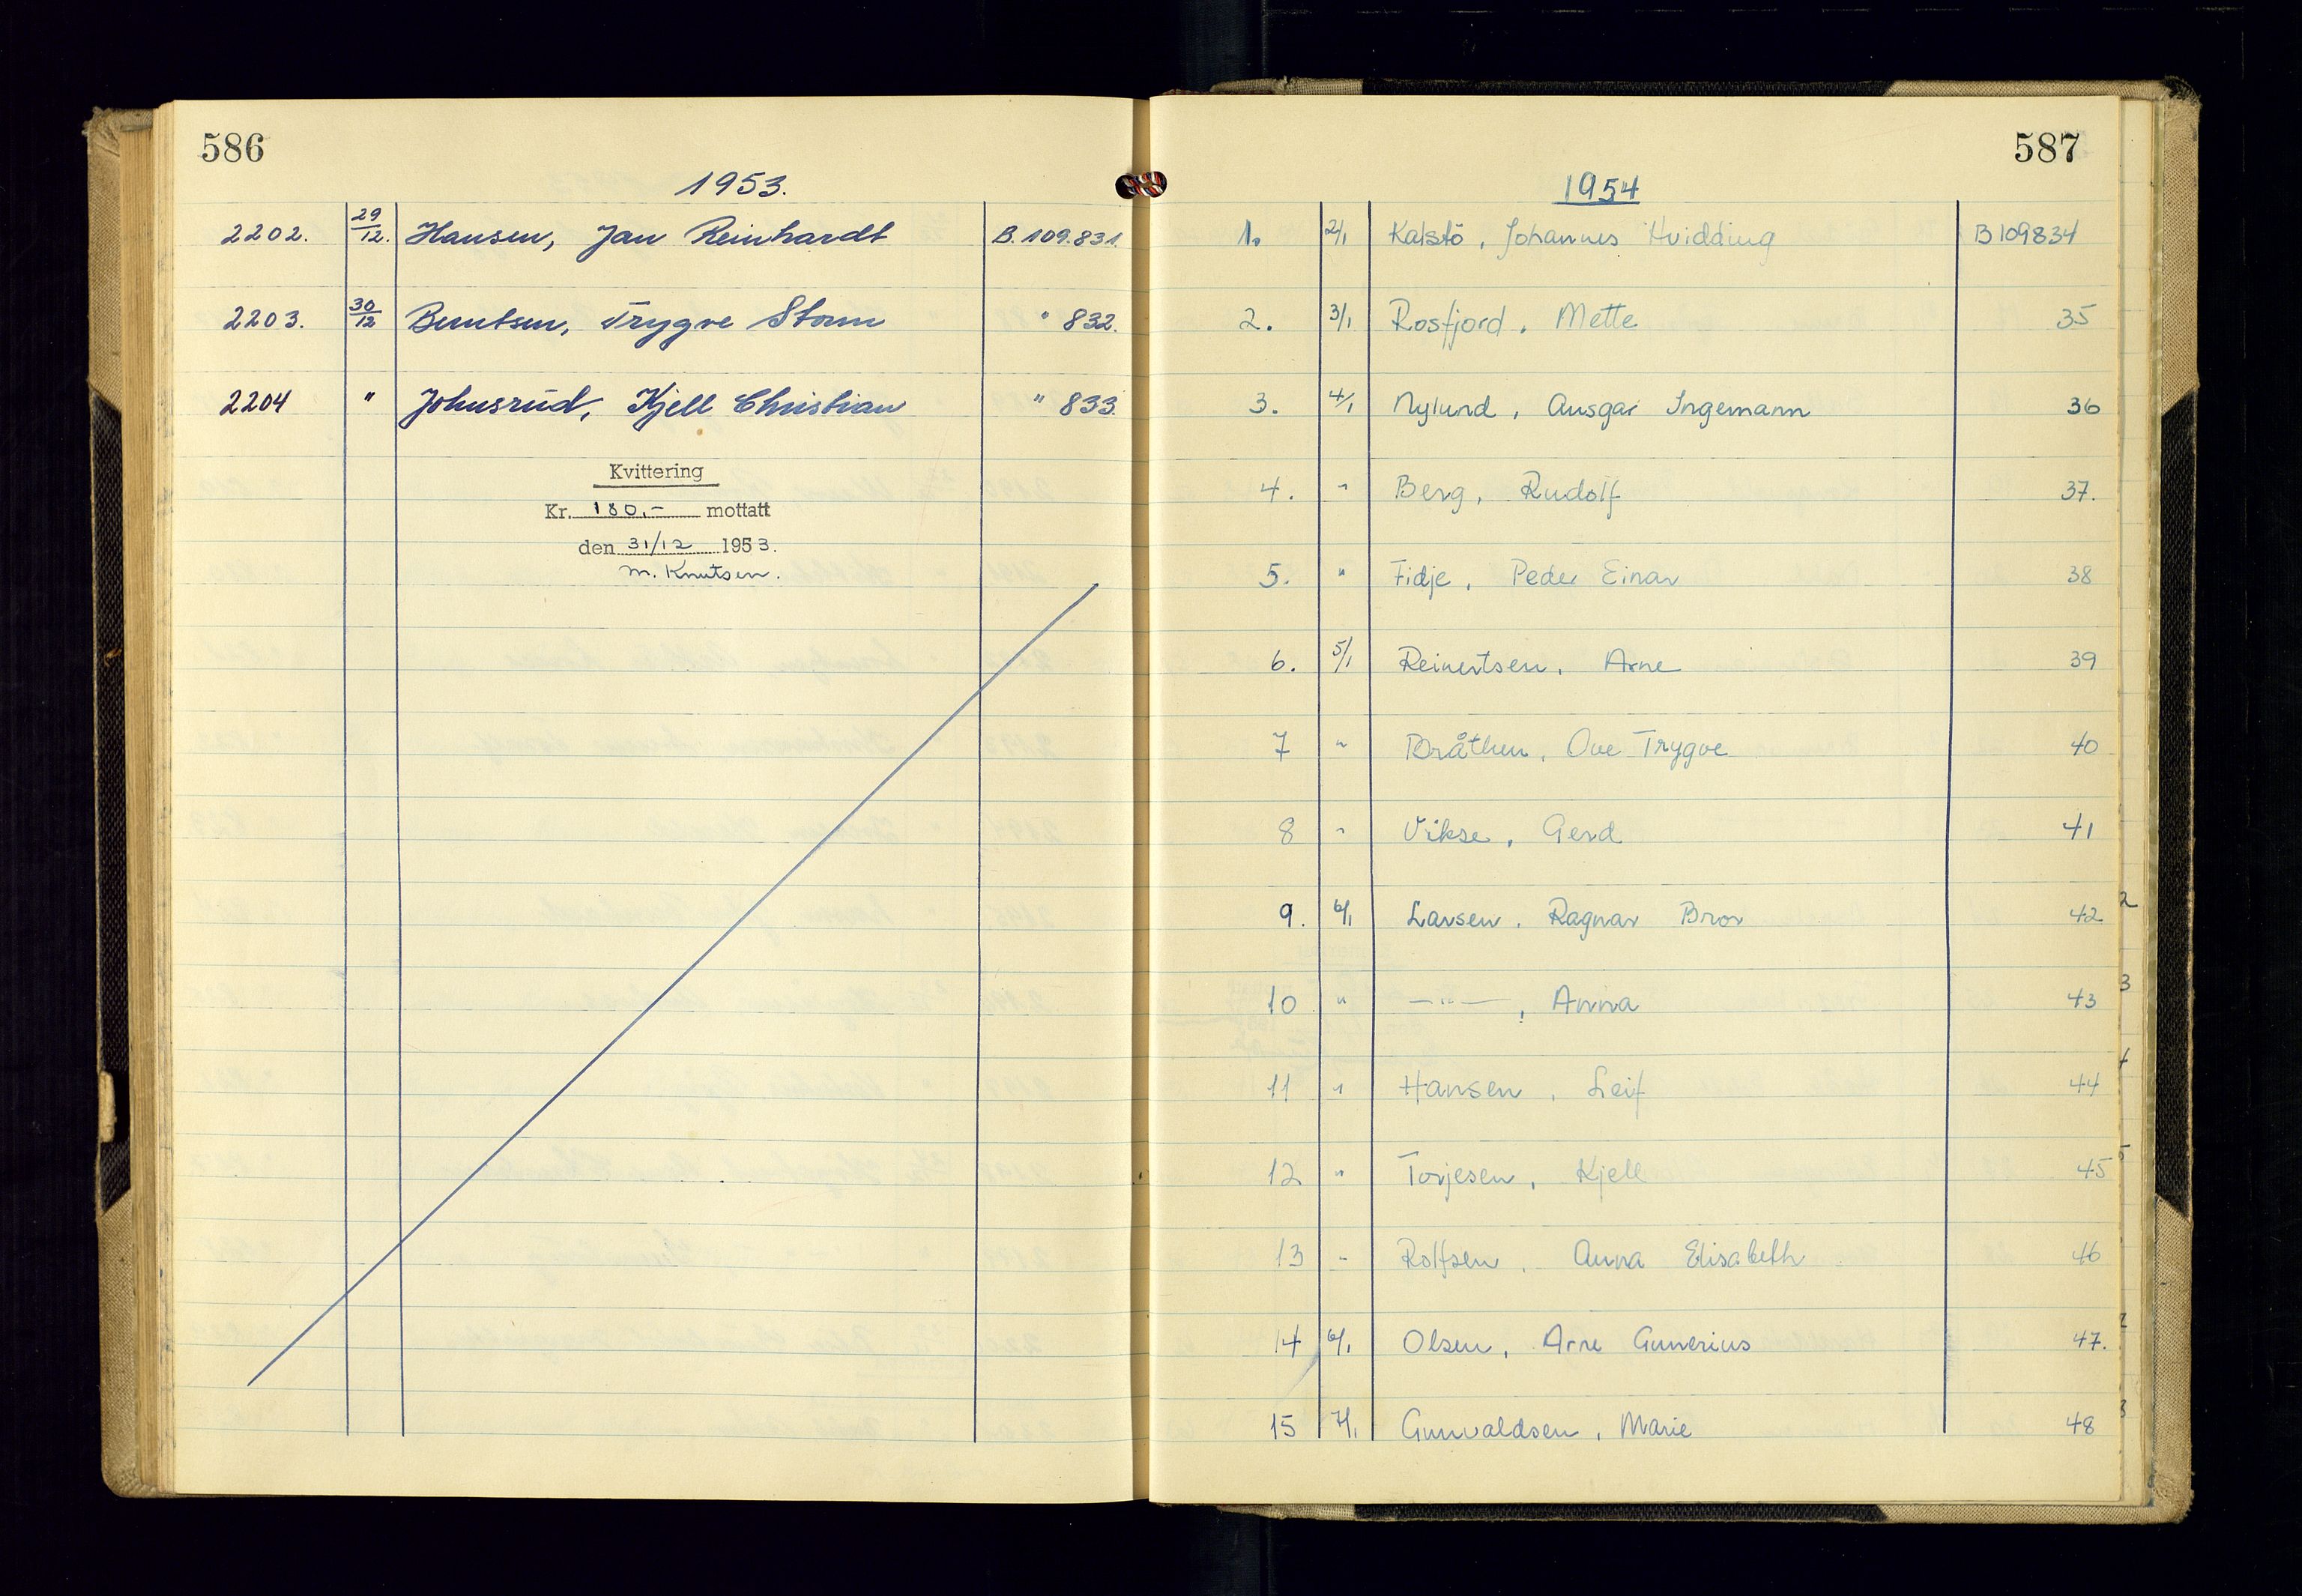 586
1953.
2202. 29/12. Hansen, Jan Reinhardt B.109.831.
2203. 30/12 Berntsen, Trygve Storm " 832.
2204 " Johnsrud, Kjell Christian " 833.
Kvittering
Kr. 180.- mottatt
den 31/12 1953.
M. Knutsen.
587
1954
1. 2/1 Kalstö, Johannes Hvidding B109834
2. 3/1 Rosfjord, Mette 35
3. 4/1 Nylund, Ansgar Ingemann 36
4. " Berg, Rudolf 37.
5. " Fidje, Peder Einar 38
6. 5/1 Reinertsen, Arne 39
7 " Bråthen, Ove Trygve 40
8 " Vikse, Gerd 41
9. 6/1 Larsen, Ragnar Bror 42
10 " —"—, Anna 43
11 " Hansen, Leif 44
12 " Torjesen, Kjell 45
13 - Rolfsen, Anna Elisabeth 46
14 6/1 Olsen, Arne Gunerius 47.
15 7/1 Gunvaldsen, Marie 48